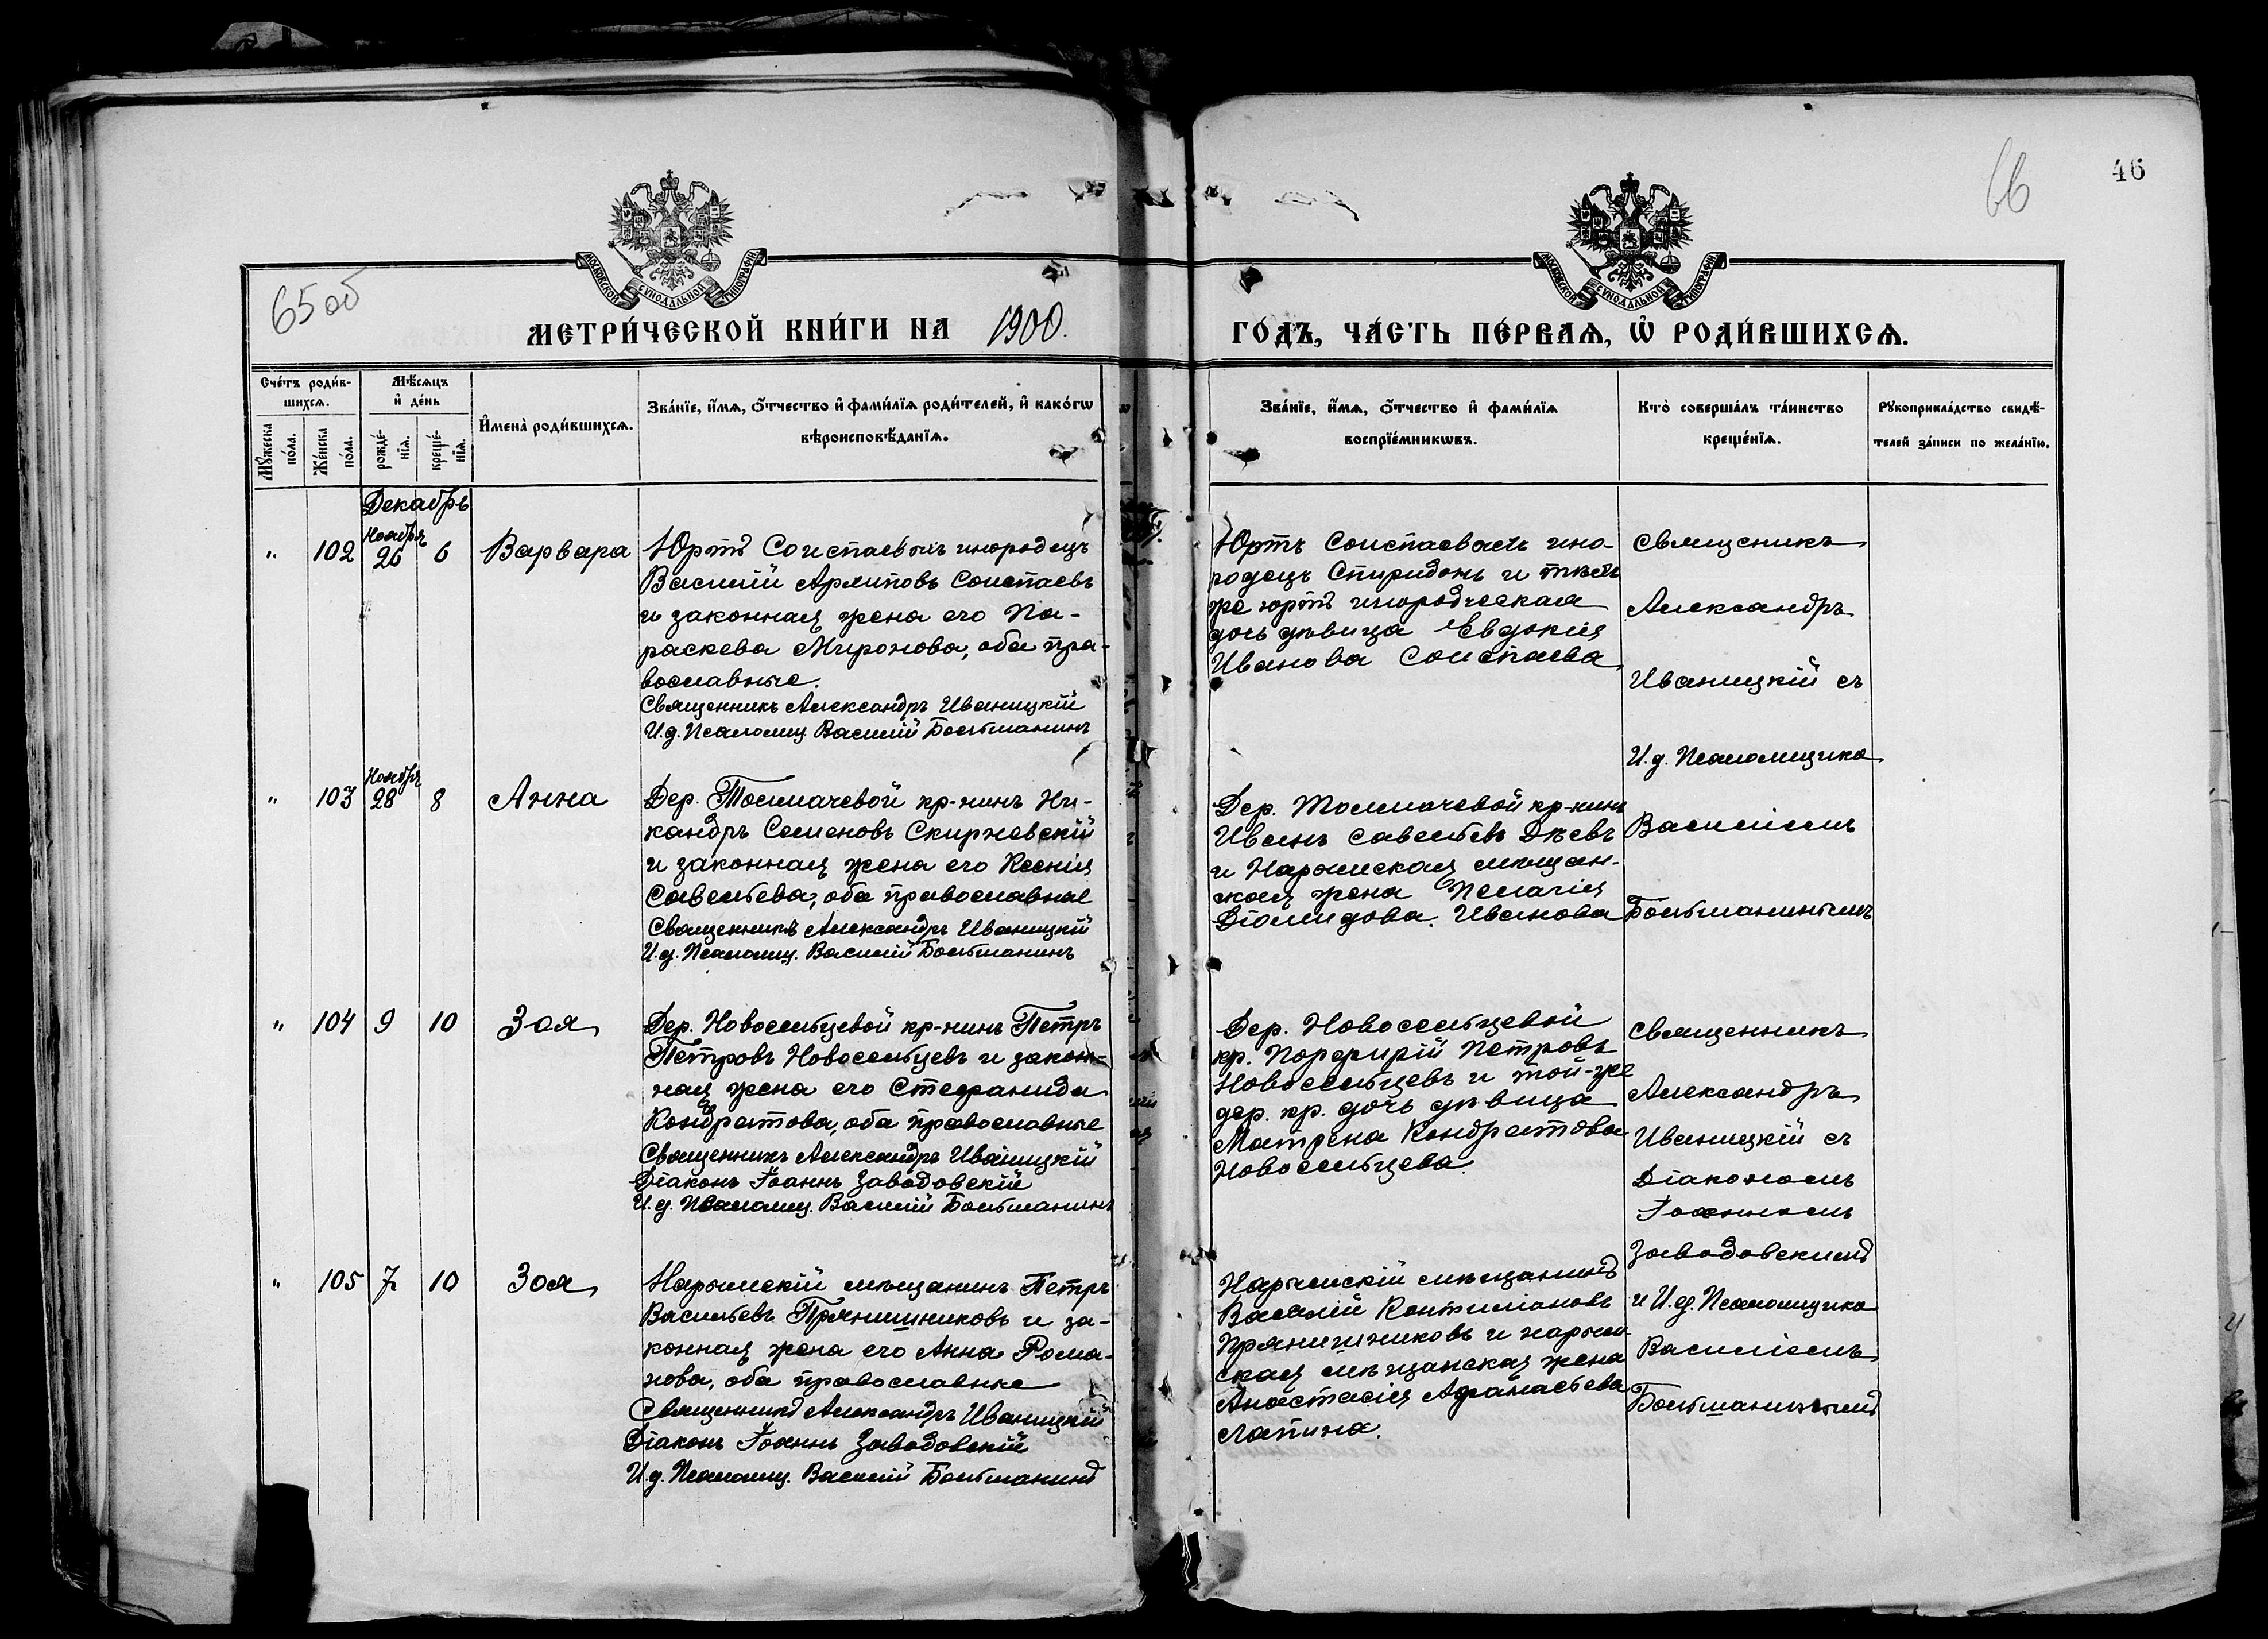 65 об
66
46
МОСКОВСКОЙ СѴНОДАЛЬНОЙ ТИПОГРАФІИ
МОСКОВСКОЙ СѴНОДАЛЬНОЙ ТИПОГРАФІИ
МЕТРИ́ЧЕСКОЙ КНИ́ГИ НА 1900.
ГО́ДЪ, ЧА́СТЬ ПЕ́РВАѦ, Ѡ҆ РОДИ́ВШИХСѦ.
Сче́тъ роди́в-
шихсѧ.
Мꙋ́жеска по́ла.
Же́нска по́ла.
Мѣ́сѧцъ
и҆ де́нь
рожде́-
нїѧ.
креще́-
нїѧ.
И҆мена̀ роди́вшихсѧ.
Зва́нїе, и҆́мѧ, ѻ҆́тчество и҆ фами́лїѧ роди́телей, и҆ како́гѡ
вѣроисповѣ́данїѧ.
Зва́нїе, и҆́мѧ, ѻ҆́тчество и҆ фами́лїѧ
воспрїе́мникѡвъ.
Кто̀ соверша́лъ та́инство
креще́нїѧ.
Рꙋкоприкла́дство свидѣ́-
телей за́писи по жела́нїю.
Декабрь
"
102
Ноября
26
6
Варвара
Юртъ Соиспаевыхъ инородецъ
Василій Архиповъ Соиспаевъ
и законная жена его Па-
раскева Миронова, оба пра-
вославные.
Священникъ Александръ Иваницкій
И.д. Псаломщ. Василій Больтманинъ
Юртъ Соиспаевыхъ ино-
родецъ Спиридонъ и тѣхъ
же юртъ инородческая
дочь дѣвица Евдокія
Иванова Соиспаева
Священникъ
Александръ
Иваницкій съ
И.д. Псаломщика
Василіемъ
Больтманинымъ
"
103
Ноября
28
8
Анна
Дер. Толмачевой кр-нинъ Ни-
кандръ Семеновъ Скирневскій
и законная жена его Ксенія
Савельева, оба православные
Священникъ Александръ Иваницкій
И.д. Псаломщ. Василій Больтманинъ
Дер. Толмачевой кр-нинъ
Иванъ Савельевъ Дѣевъ
и Нарымская мѣщан-
ская жена Пелагія
Діомидова Иванова
"
104
9
10
Зоя
Дер. Новосельцевой кр-нинъ Петръ
Петровъ Новосельцевъ и закон-
ная жена его Стефанида
Кондратова, оба православные
Священникъ Александръ Иваницкій
Діаконъ Іоаннъ Заводовскій
И.д. Псаломщ. Василій Больтманинъ
Дер. Новосельцевой
кр. Порфирій Петровъ
Новосельцевъ и той-же
дер. кр. дочь дѣвица
Матрена Кондратова
Новосельцева.
Священникъ
Александръ
Иваницкій съ
Діакономъ
Іоанномъ
Заводовскимъ
и И.д. Псаломщика
Василіемъ
Больтманинымъ
"
105
7
10
Зоя
Нарымскій мѣщанинъ Петръ
Васильевъ Прянишниковъ и за-
конная жена его Анна Рома-
нова, оба православные
Священникъ Александръ Иваницкій
Діаконъ Іоаннъ Заводовскій
И.д. Псаломщ. Василій Больтманинъ
Нарымскій мѣщанинъ
Василій
Прянишниковъ и нарым-
ская мѣщанская жена
Анастасія Афанасьева
Лапина.